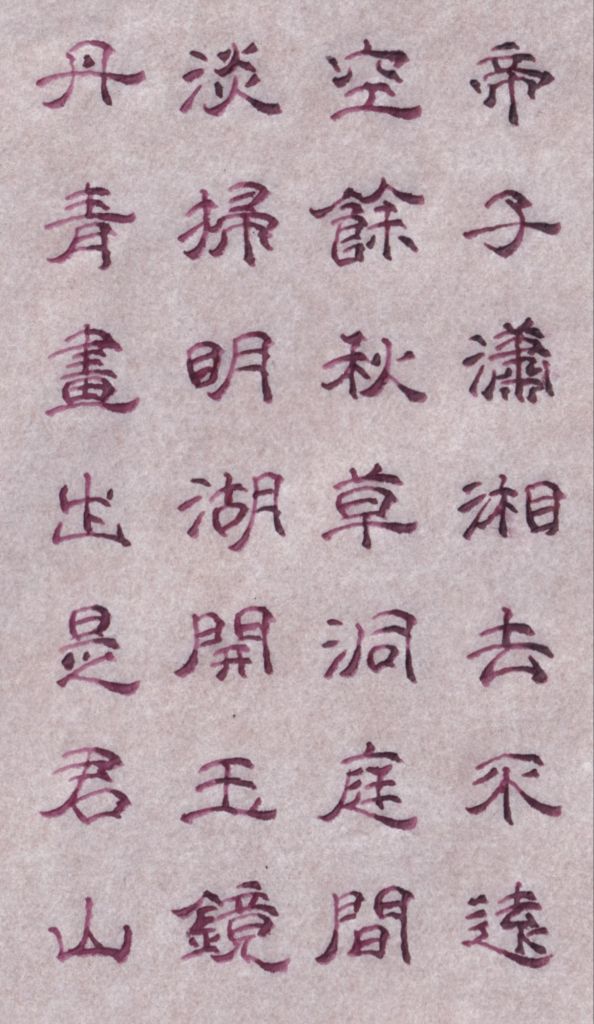 帝子瀟湘去不遠
空餘秋草洞庭間
淡掃明湖開玉鏡
丹青畫出是君山